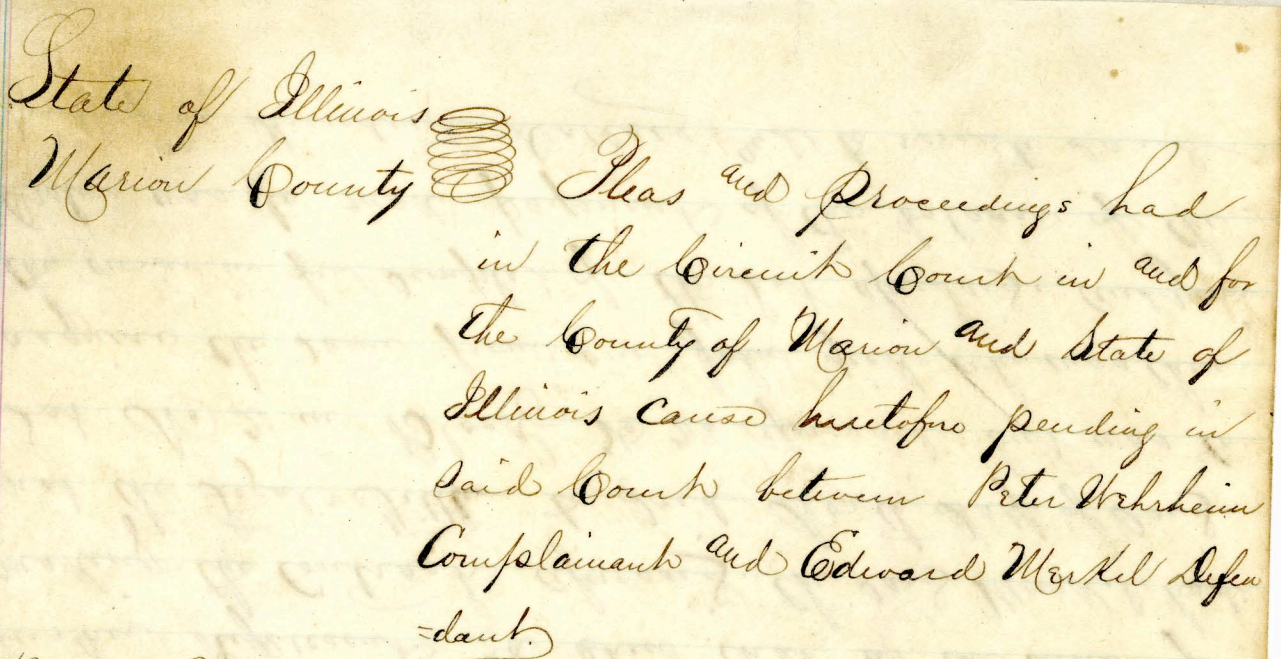 State of Illinois
Marion County Pleas and Proceedings had
in the Circuit Court in and for
the County of Marion and State of
Illinois cause heretofore pending in
said Court between Peter Wehrheim
Complainant and Edward Merkel Defen
=dant.